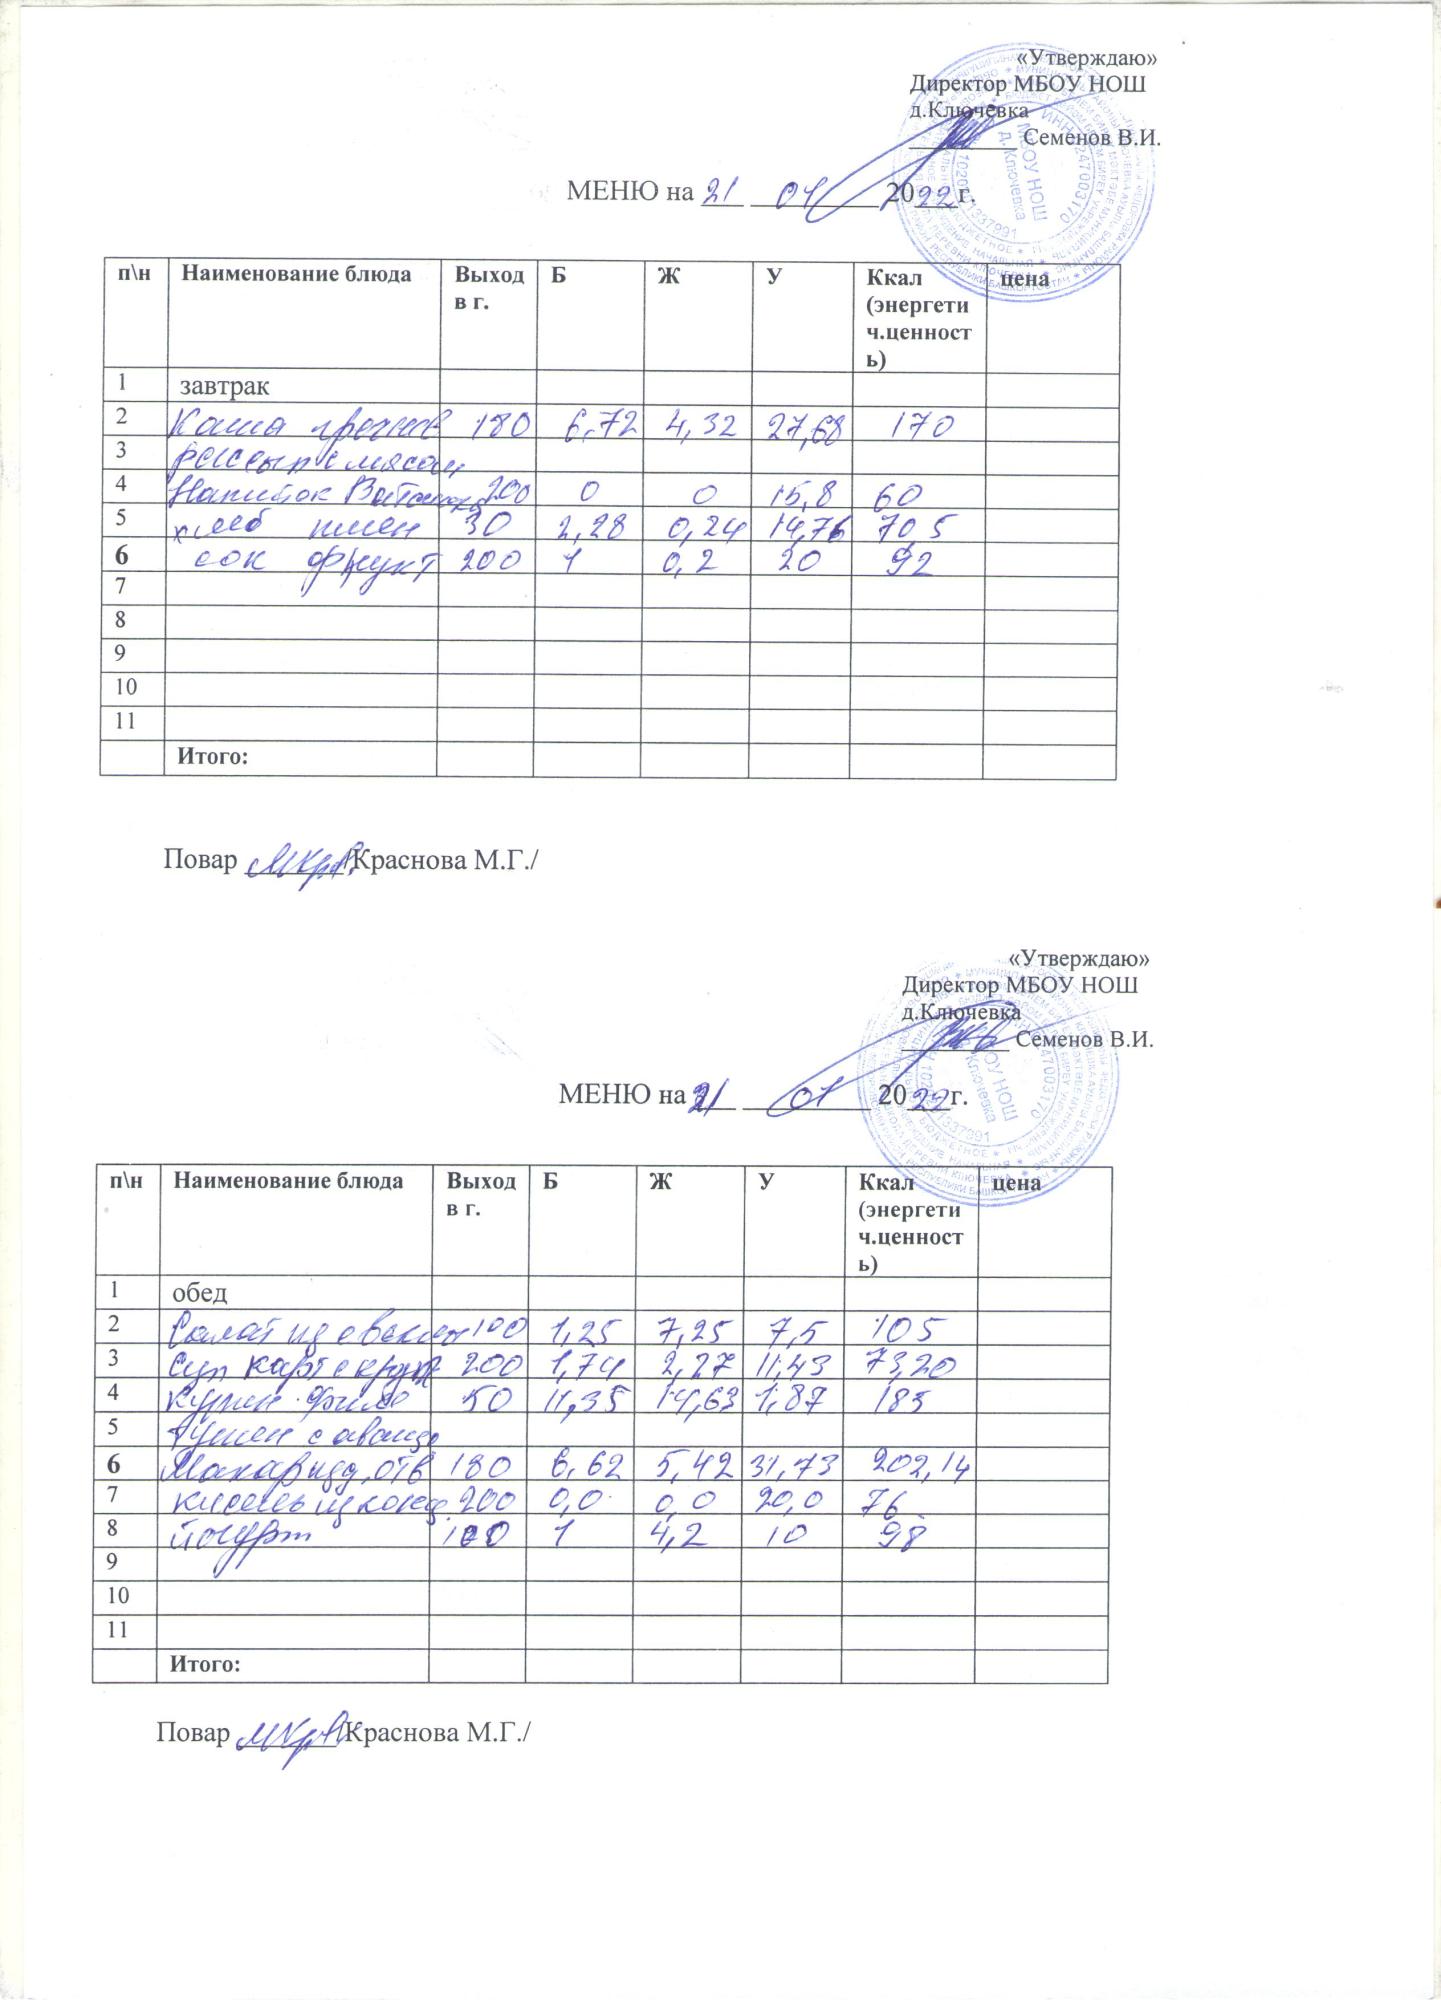 «Утверждаю»
Директор МБОУ НОШ
д.Ключевка
Семенов В.И.
МЕНЮ на 21 01 2022г.
п\н Наименование блюда Выход в г. Б Ж У Ккал (энергетич.ценность) цена
1 завтрак
2 Каша гречнев 180 6,72 4,32 27,68 170
3 рассып с мясом
4 Напиток Витошка 200 0 0 15,8 60
5 хлеб пшен 30 2,28 0,24 14,76 70,5
6 сок фрукт 200 1 0,2 20 92
7
8
9
10
11
Итого:
Повар /Краснова М.Г./
«Утверждаю»
Директор МБОУ НОШ
д.Ключевка
Семенов В.И.
МЕНЮ на 21 01 2022г.
п\н Наименование блюда Выход в г. Б Ж У Ккал (энергетич.ценность) цена
1 обед
2 Салат из свеклы 100 1,25 7,25 7,5 105
3 Суп карт с круп 200 1,74 2,27 11,43 73,20
4 Курин филе 50 11,35 14,63 1,87 183
5 тушен с овощ
6 Макар изд, отв 180 6,62 5,42 31,73 202,14
7 кисель из конц. 200 0,0 0,0 20,0 76
8 йогурт 100 1 4,2 10 98
9
10
11
Итого:
Повар /Краснова М.Г./